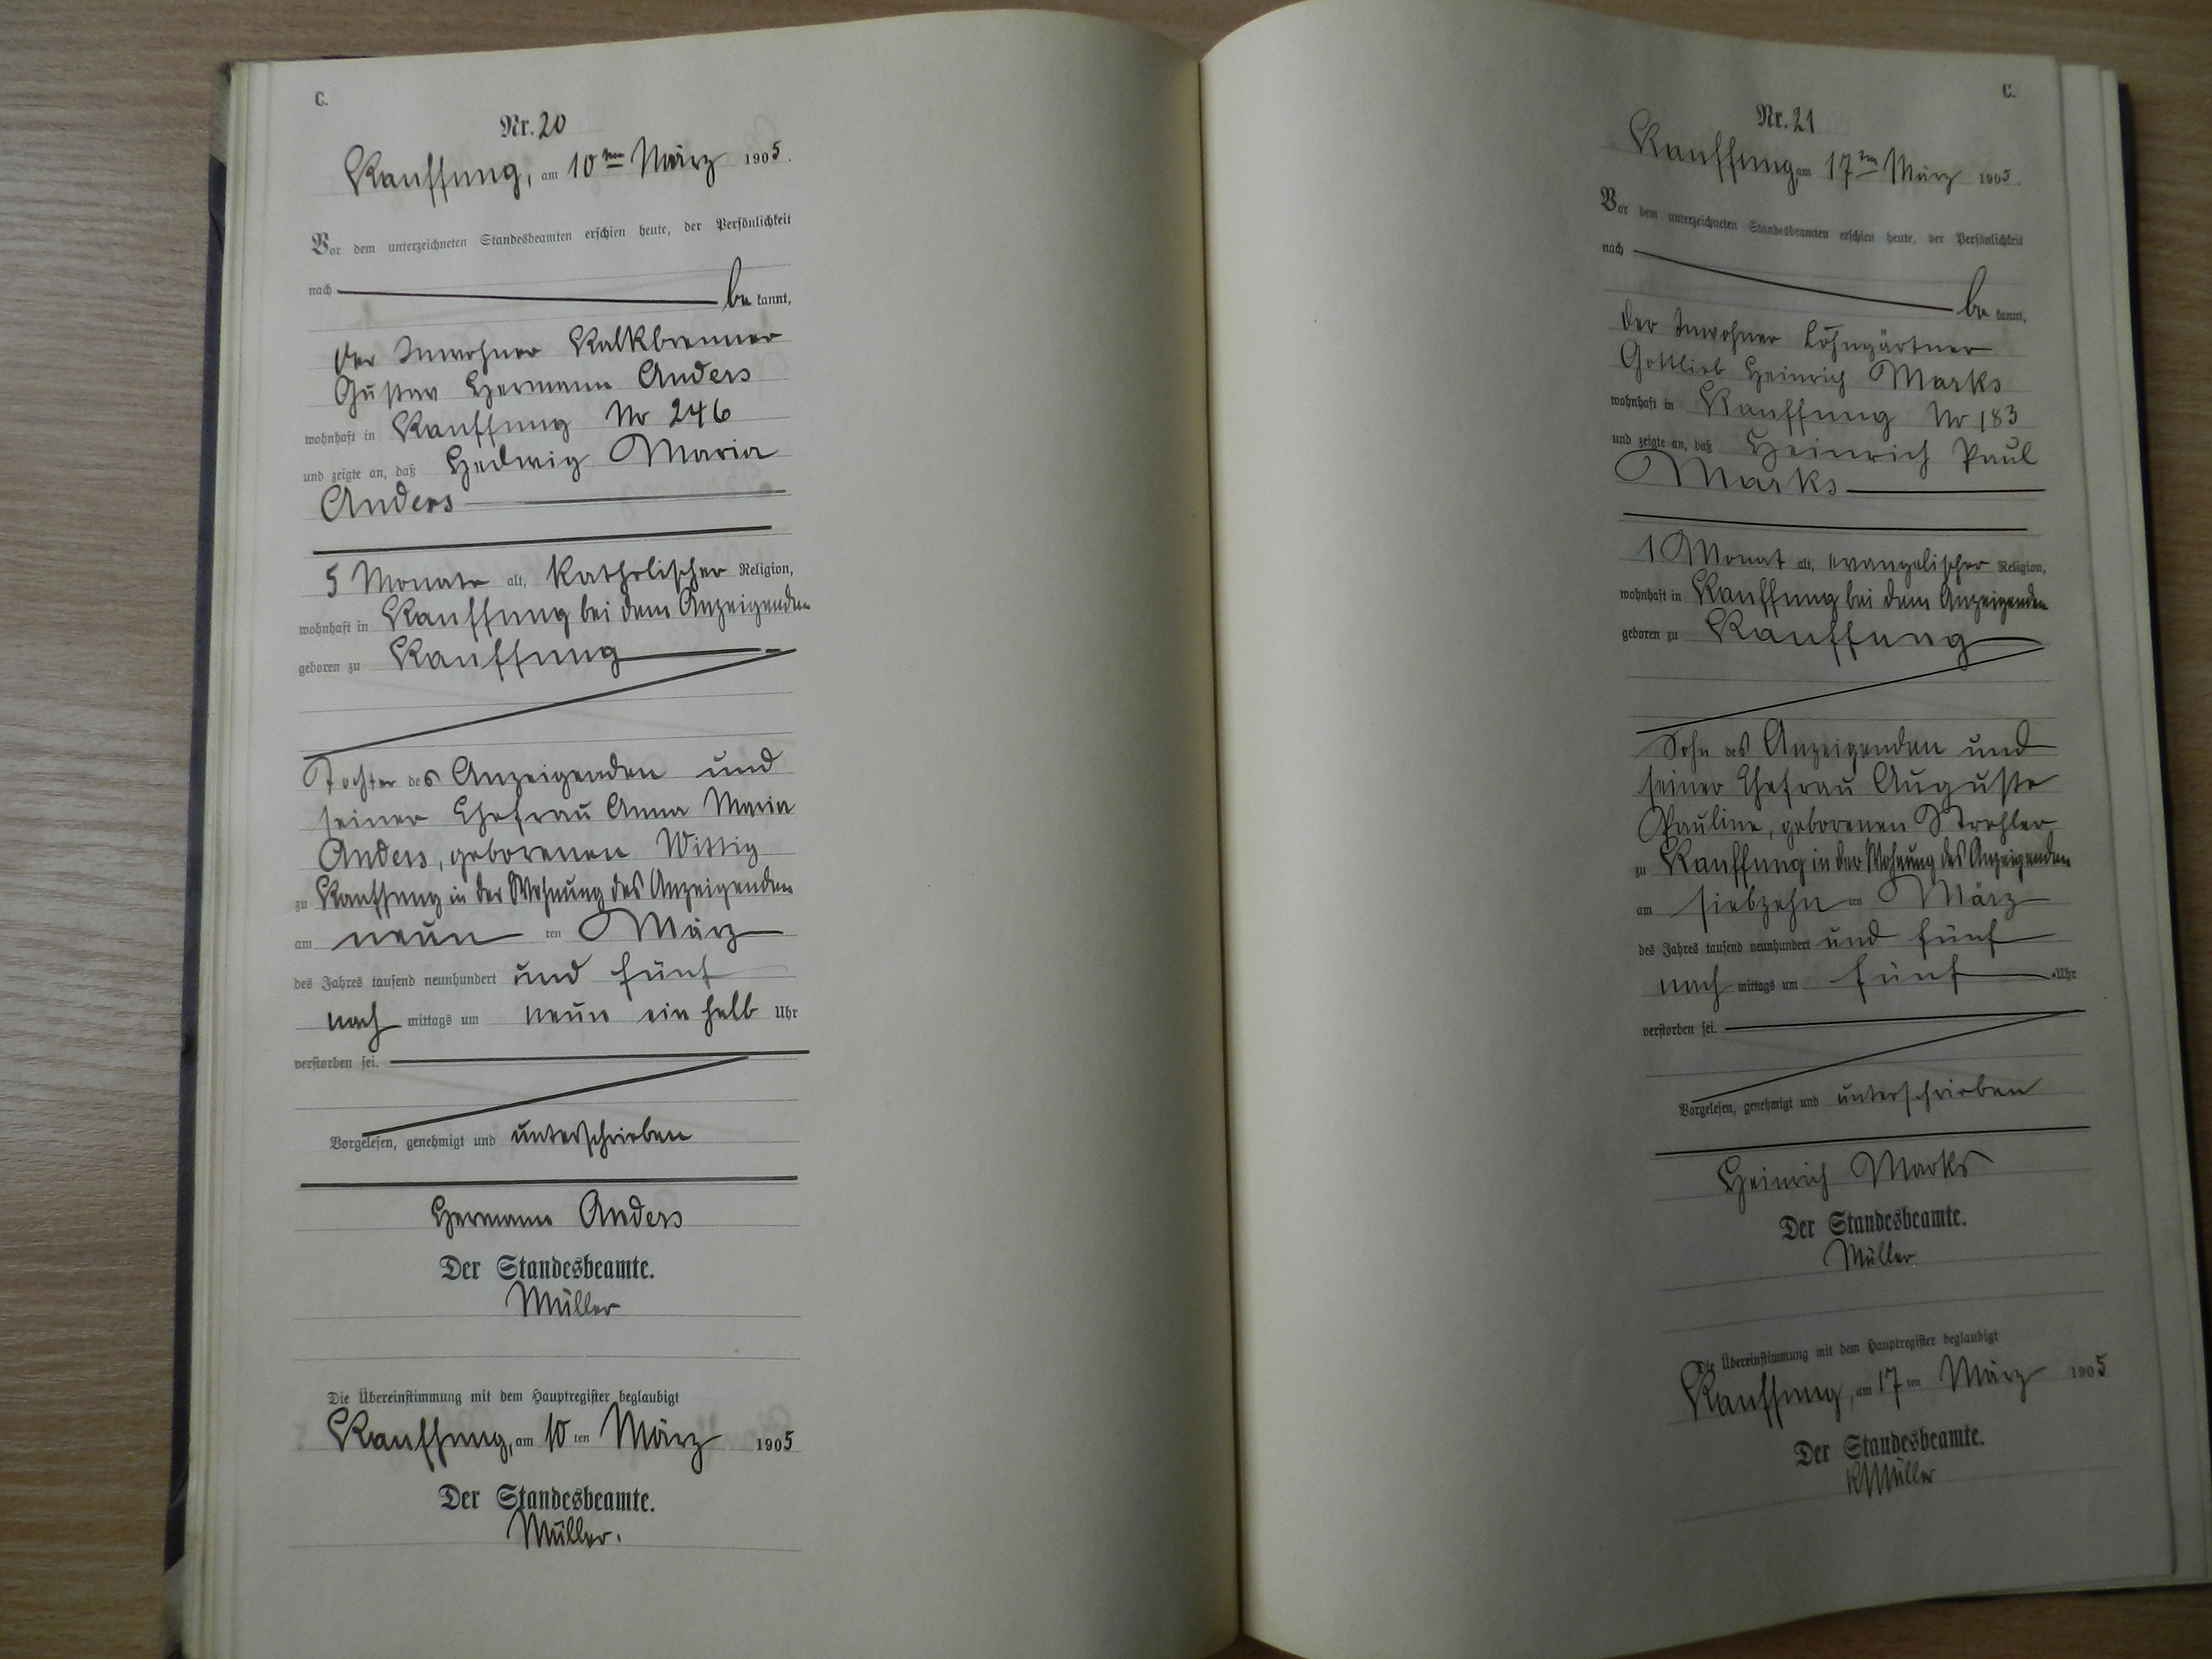 C.
Nr. 20
Kauffung, am 10ten März 1905.
Vor dem unterzeichneten Standesbeamten erschien heute, der Persönlichkeit
nach be kannt,
der Inwohner Kalkbrenner
Gustav Hermann Anders
wohnhaft in Kauffung No 246
und zeigte an, daß Hedwig Maria
Anders
5 Monate alt, katholischer Religion,
wohnhaft in Kauffung bei dem Anzeigenden
geboren zu Kauffung
Tochter des Anzeigenden und
seiner Ehefrau Anna Maria
Anders, geborenen Wittig
zu Kauffung in der Wohnung des Anzeigenden
am neun ten März
des Jahres tausend neunhundert und fünf
nach mittags um neun ein halb Uhr
verstorben sei.
Vorgelesen, genehmigt und unterschrieben
Hermann Anders
Der Standesbeamte.
Müller
Die Übereinstimmung mit dem Hauptregister beglaubigt
Kauffung, am 10 ten März 1905
Der Standesbeamte.
Müller.
C.
Nr. 21
Kauffung, am 17ten März 1905.
Vor dem unterzeichneten Standesbeamten erschien heute, der Persönlichkeit
nach be kannt,
der Inwohner Lohngärtner
Gottlieb Heinrich Marks
wohnhaft in Kauffung No 183
und zeigte an, daß Heinrich Paul
Marks
1 Monat alt, evangelischer Religion,
wohnhaft in Kauffung bei dem Anzeigenden
geboren zu Kauffung
Sohn des Anzeigenden und
seiner Ehefrau Auguste
Pauline, geborenen Strehler
zu Kauffung in der Wohnung des Anzeigenden
am siebzehn ten März
des Jahres tausend neunhundert und fünf
nach mittags um fünf Uhr
verstorben sei.
Vorgelesen, genehmigt und unterschrieben
Heinrich Marks
Der Standesbeamte.
Müller
Die Übereinstimmung mit dem Hauptregister beglaubigt
Kauffung, am 17 ten März 1905
Der Standesbeamte.
Müller